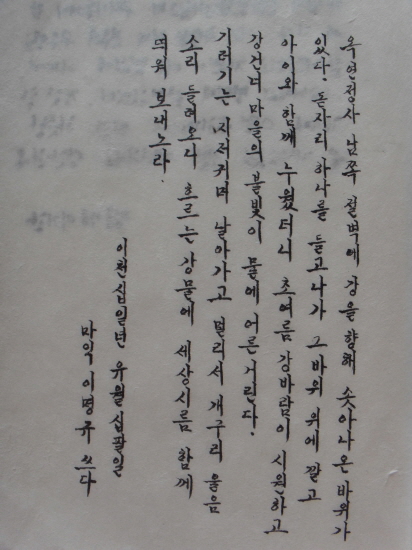 옥연정사 남쪽 절벽에 강을 향해 솟아나온 바위가
있다. 돗자리 하나를 들고나가 그 바위 위에 깔고
아이와 함께 누웠더니 초여름 강바람이 시원하고
강건너 마을의 불빛이 물에 어른거린다.
기러기는 지저귀며 날아가고 멀리서 개구리 울음
소리 들려오니 흐르는 강물에 세상시름 함께
띄워 보내노라.
이천십일년 유월십팔일
마익 이명규 쓰다